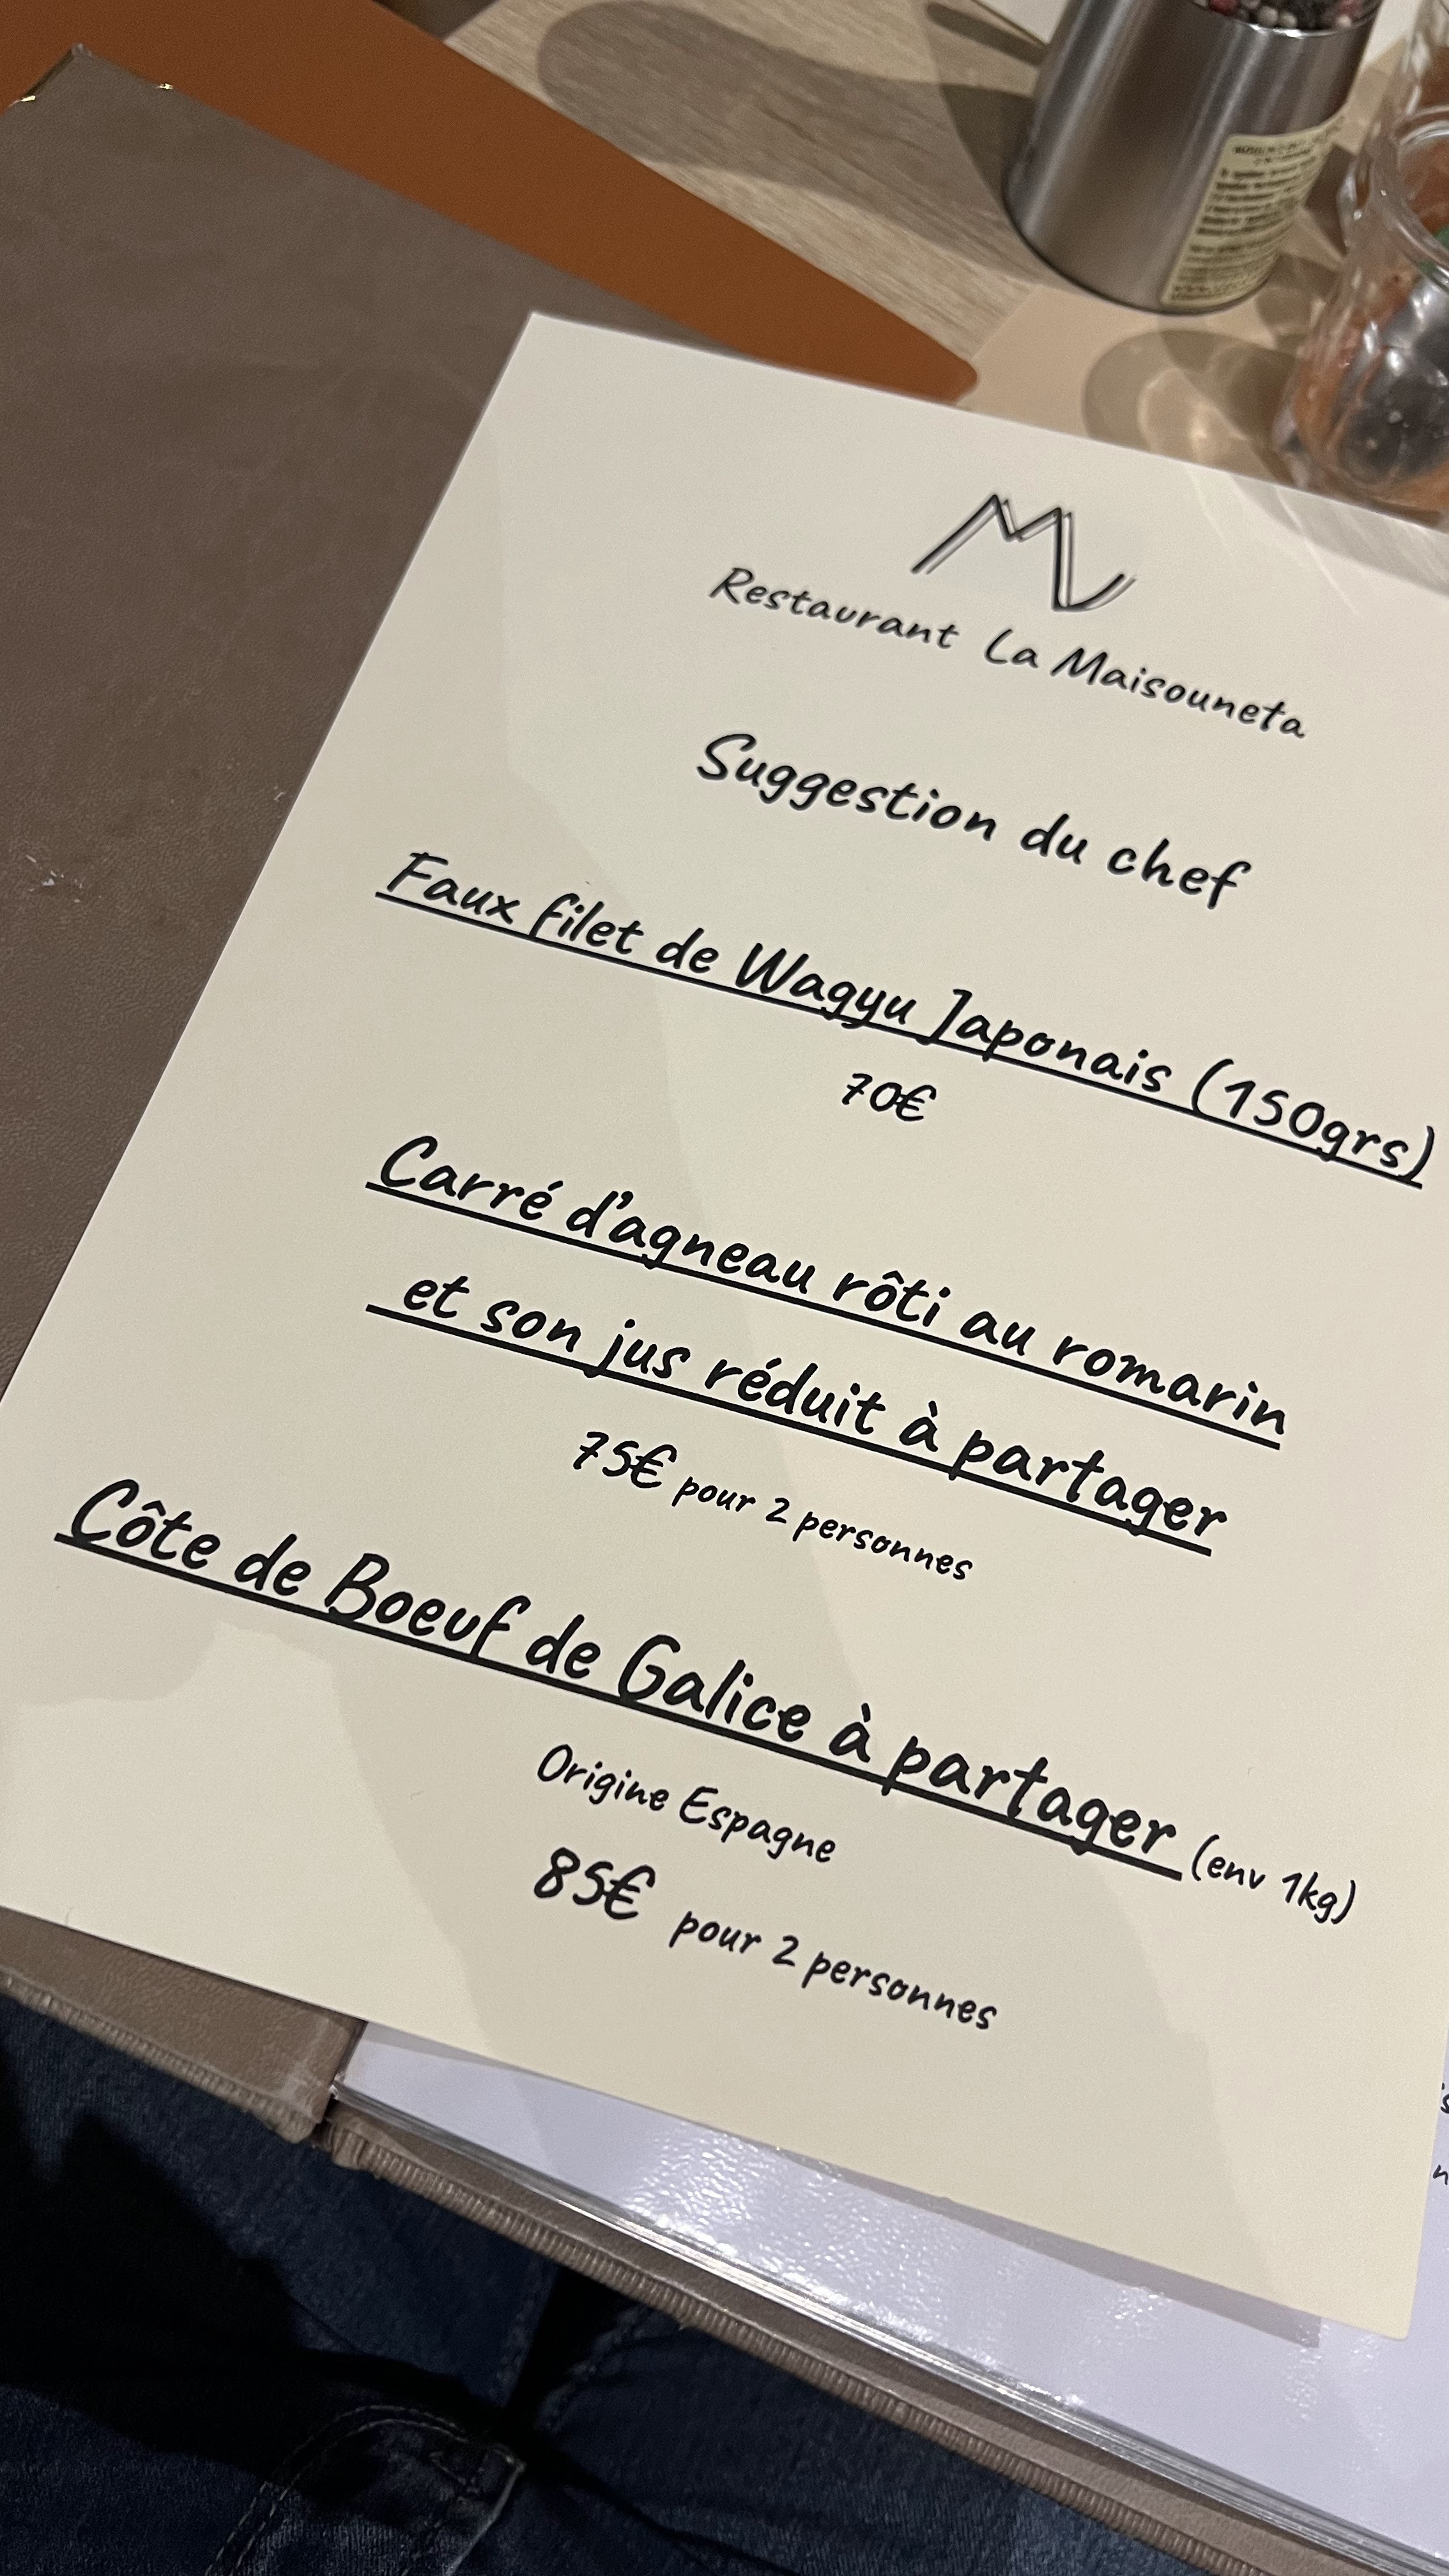 Restaurant La Maisouneta
Suggestion du chef
Faux filet de Wagyu Japonais (150grs)
70€
Carré d'agneau rôti au romarin
et son jus réduit à partager
75€ pour 2 personnes
Côte de Boeuf de Galice à partager (env 1kg)
Origine Espagne
85€ pour 2 personnes